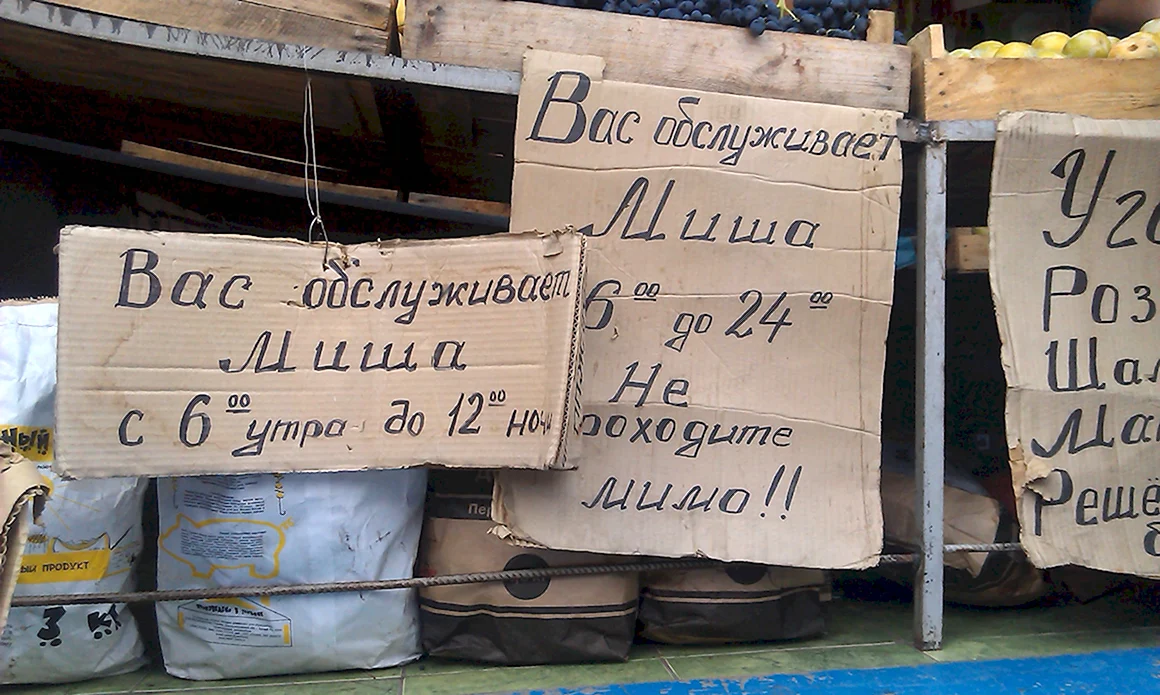 Вас обслуживает
Миша
с 6⁰⁰ утра до 12⁰⁰ ночи
Вас обслуживает
Миша
6⁰⁰ до 24⁰⁰
Не
роходите
мимо!!
Уго
Роз
Шал
Ман
Решё
б
ный
ый продукт
3 кг
Пер